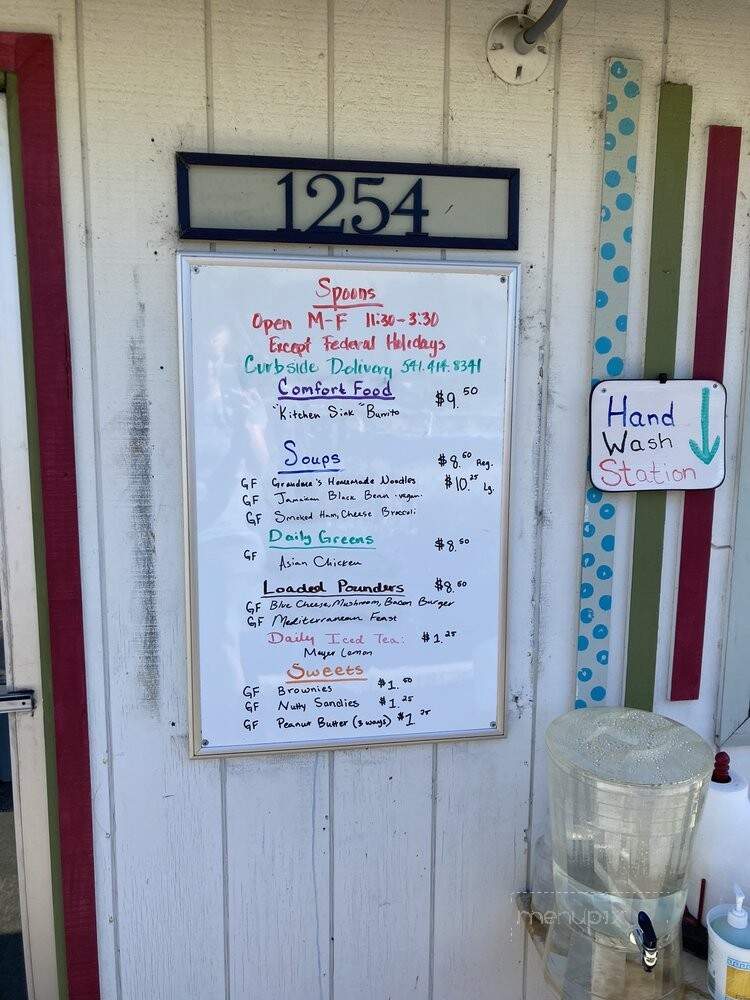 1254
Spoons
Open M-F 11:30-3:30
Except Federal Holidays
Curbside Delivery 541.414.8341
Comfort Food $9.50
"Kitchen Sink" Burrito
Soups $8.50 Reg.
GF Grandma's Homemade Noodles $10.25 Lg.
GF Jamaican Black Bean -vegan-
GF Smoked Ham, Cheese Broccoli
Daily Greens $8.50
GF Asian Chicken
Loaded Pounders $8.50
GF Blue Cheese, Mushroom, Bacon Burger
GF Mediterranean Feast
Daily Iced Tea: $1.25
Meyer Lemon
Sweets
GF Brownies $1.50
GF Nutty Sandies $1.25
GF Peanut Butter (3 ways) $1.25
Hand
Wash
Station
menupix